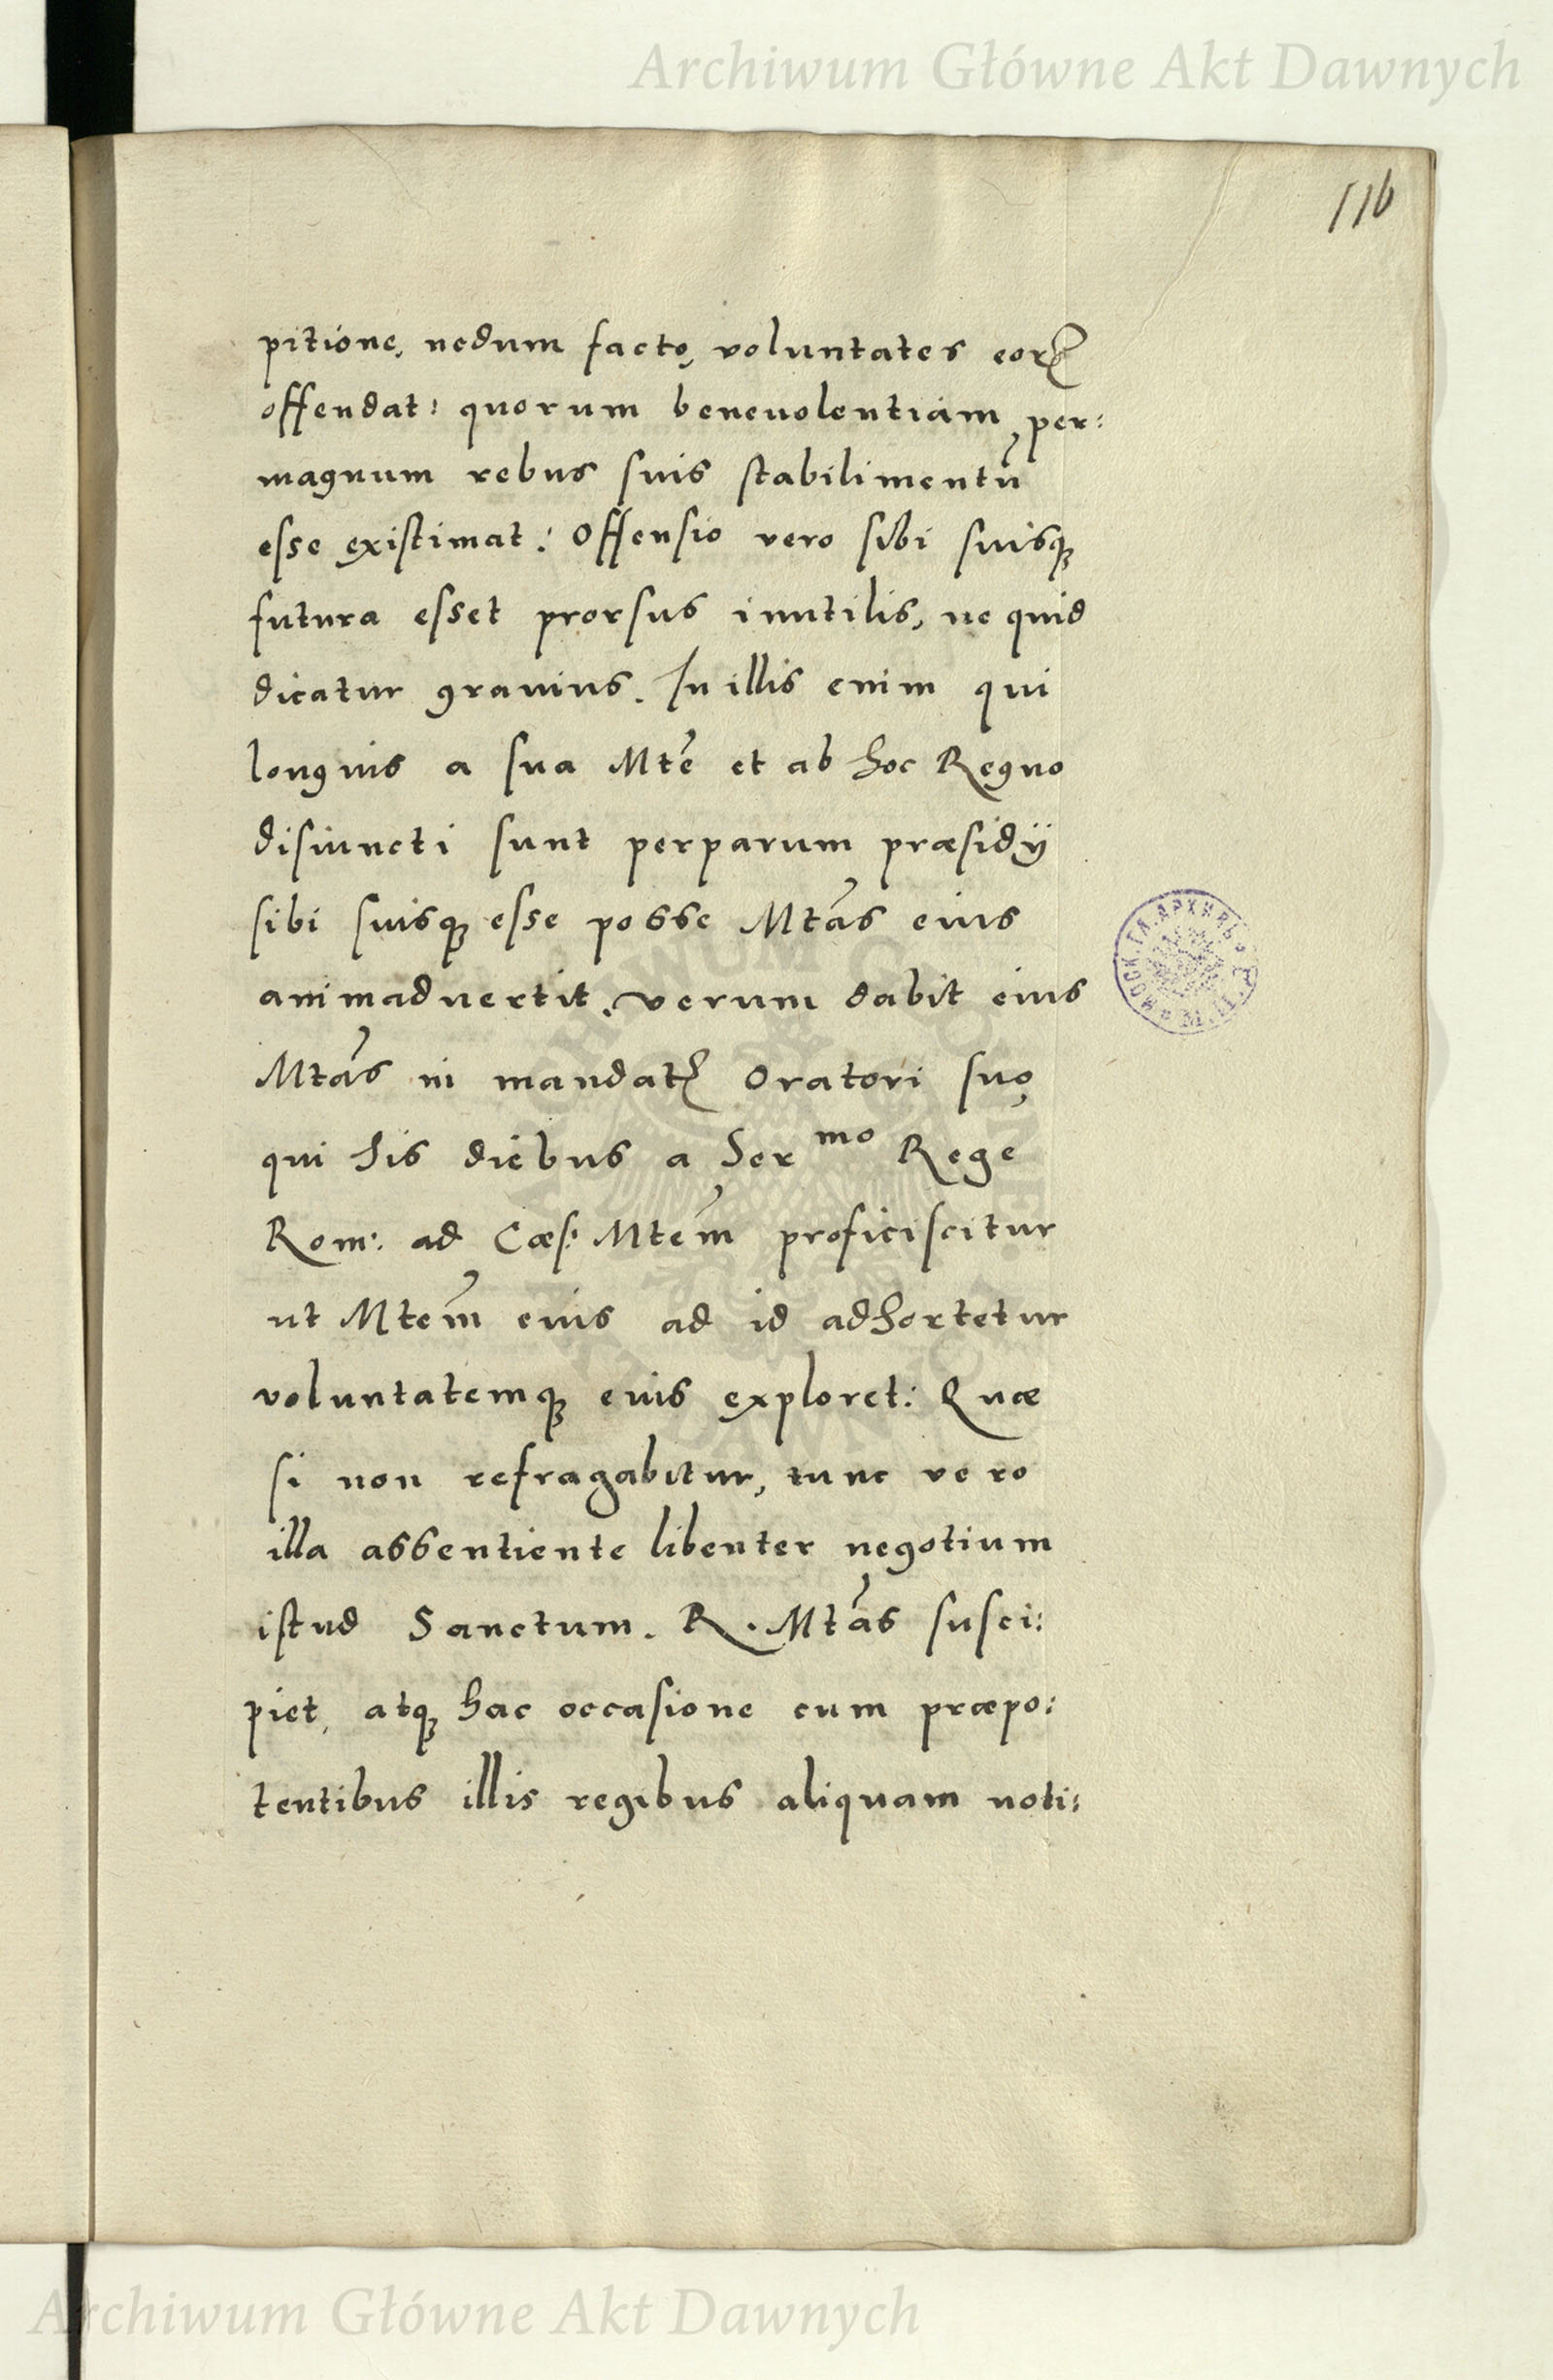 Archiwum Główne Akt Dawnych
116
pitione, nedum facto, voluntates eorꝝ
offendat: quorum beneuolentiam, per:
magnum rebus suis stabilimentū
esse existimat: Offensio vero sibi suisqꝫ
futura esset prorsus inutilis, ne quid
dicatur grauius. In illis enim qui
longius a sua Mte et ab hoc Regno
disiuncti sunt perparum præsidÿ
sibi suisqꝫ esse posse Mtas eius
animaduertit. verum dabit eius
Mtas in mandatꝭ Oratori suo,
qui his diebus a Ser mo Rege
Rom: ad Cæs: Mtem proficiscitur
ut Mtem eius ad id adhortetur
voluntatemqꝫ eius exploret: Quæ
si non refragabitur, tunc vero
illa assentiente libenter negotium
istud Sanctum. R. Mtas susci:
piet, atqꝫ hac occasione cum præpo:
tentibus illis regibus aliquam noti:
ARCHIWUM GŁÓWNE AKT DAWNYCH
Archiwum Główne Akt Dawnych